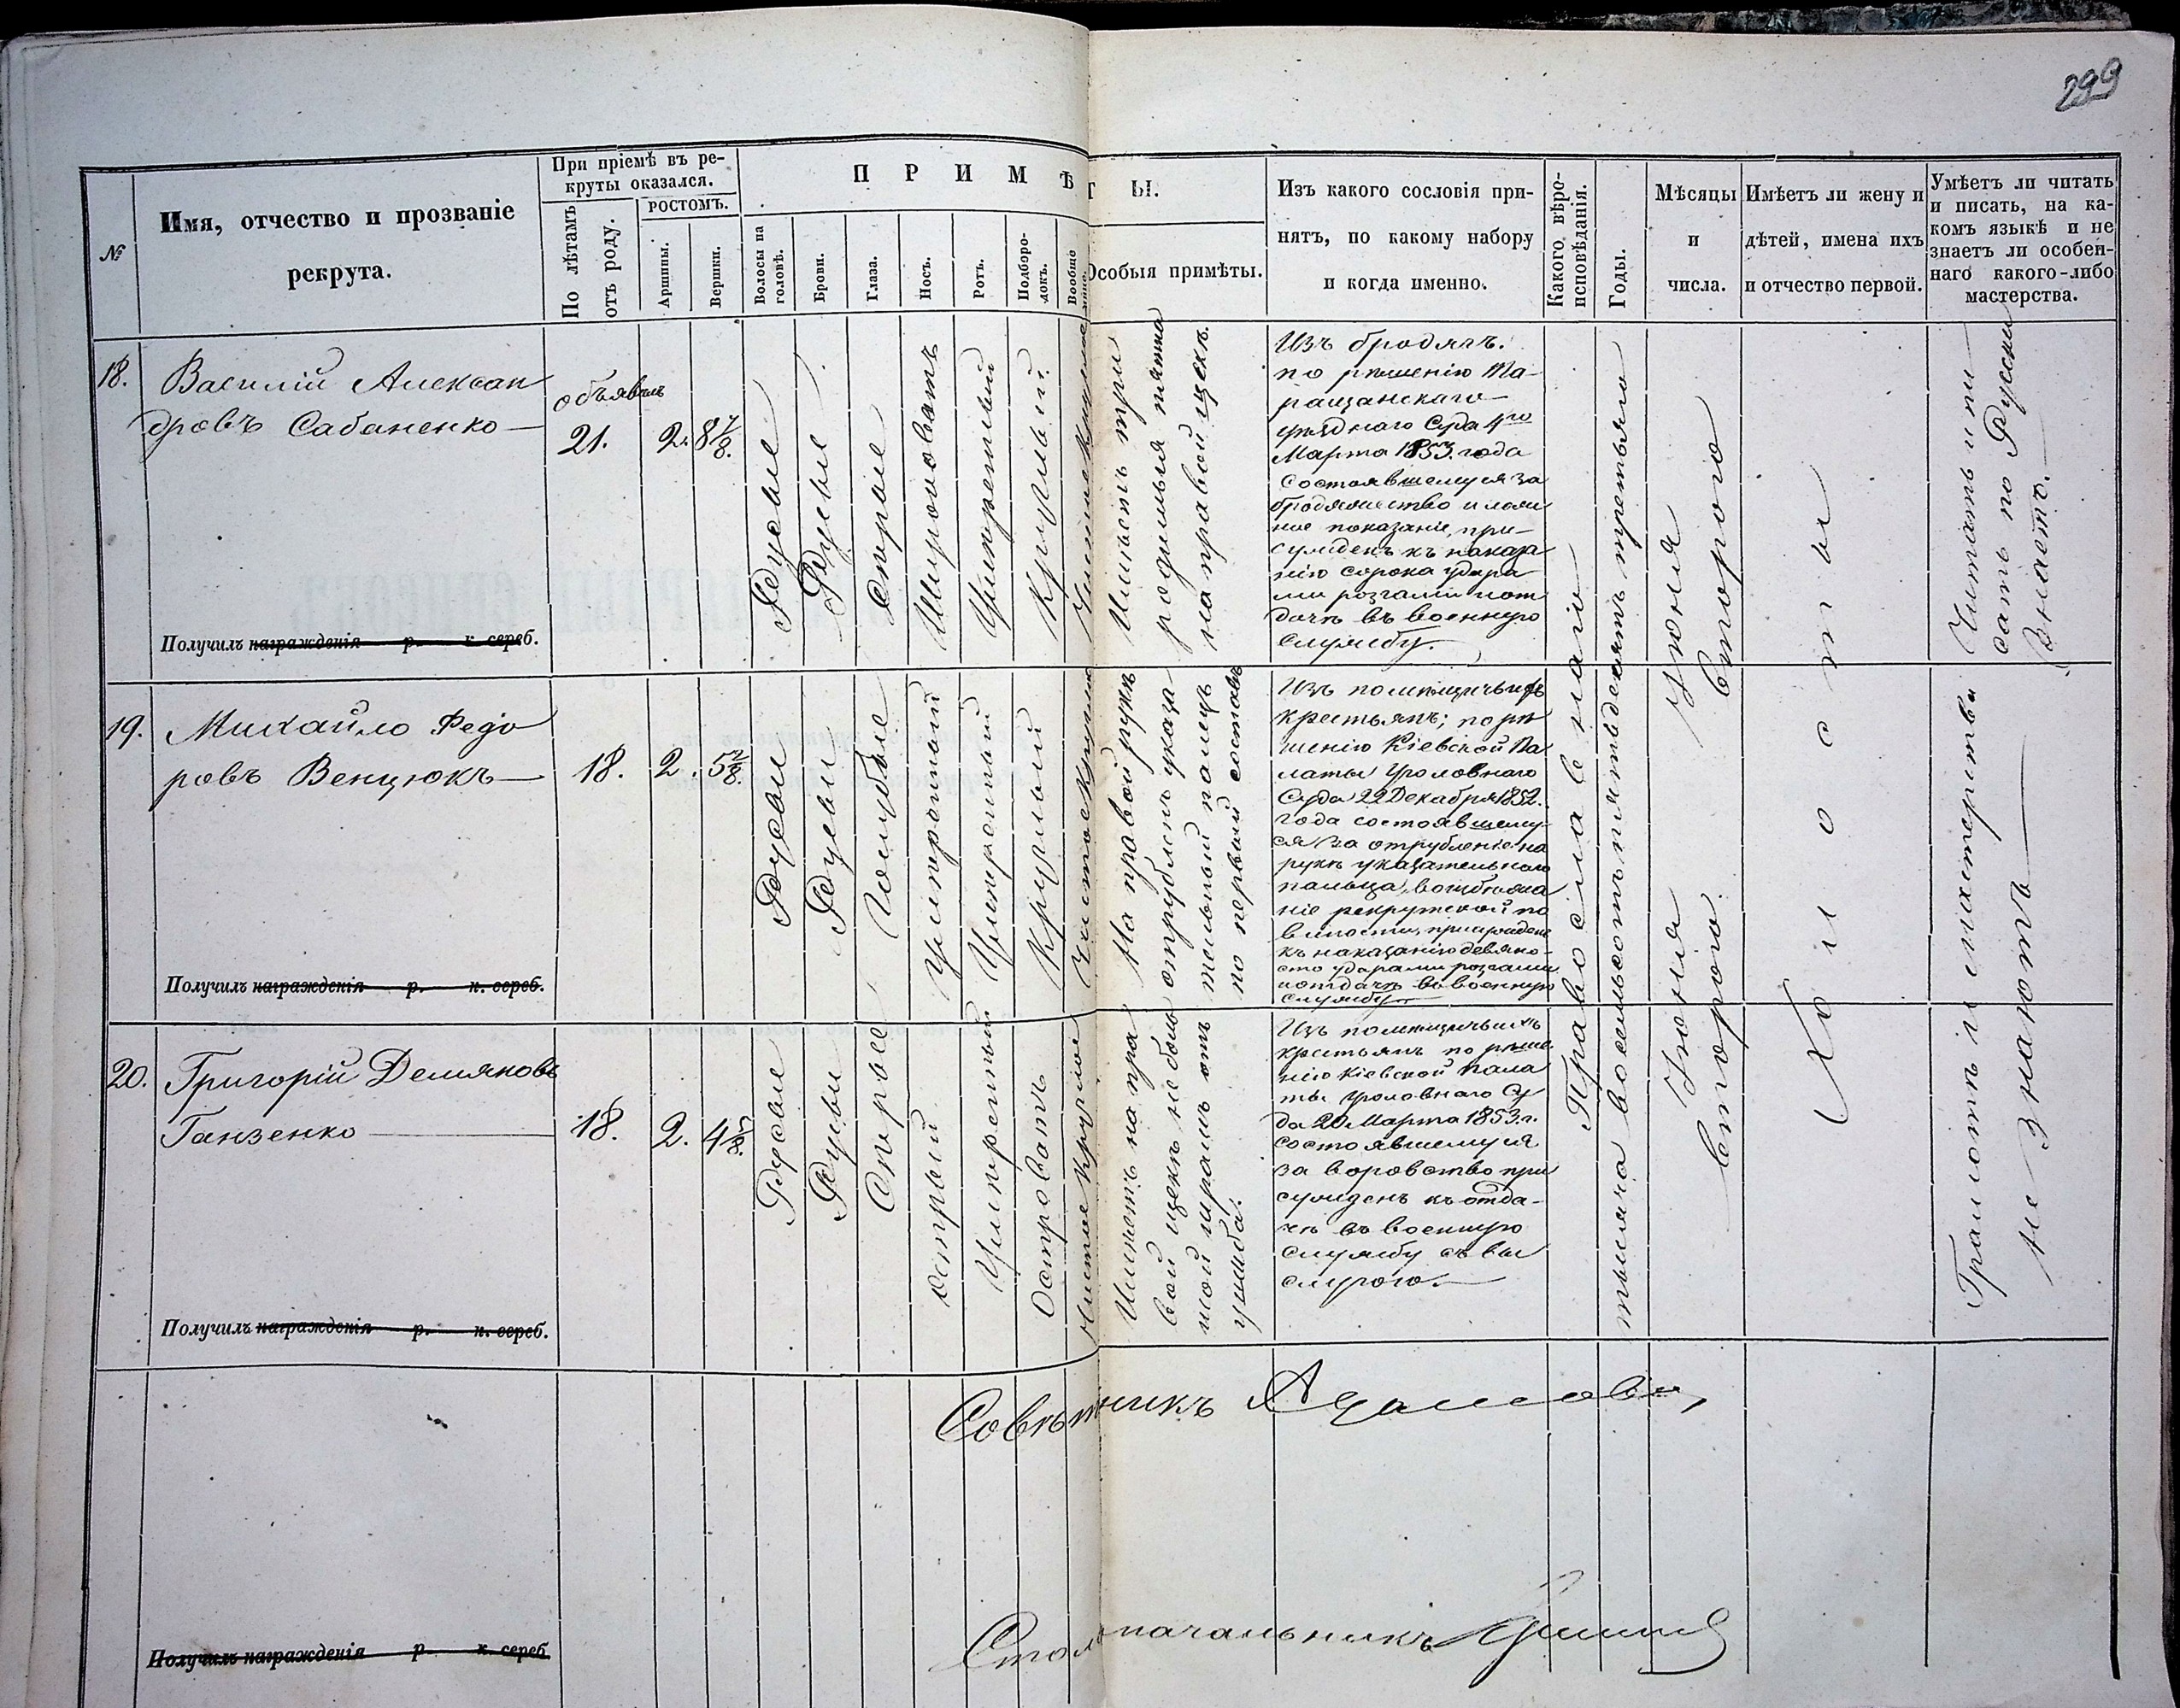 299
№
Имя, отчество и прозваніе
рекрута.
При пріемѣ въ ре-
круты оказался.
По лѣтамъ
отъ роду.
РОСТОМЪ.
Аршины.
Вершки.
ПРИМѢТЫ.
Волосы на
головѣ.
Брови.
Глаза.
Носъ.
Ротъ.
Подборо-
докъ.
Вообще
Особыя примѣты.
Изъ какого сословія при-
нятъ, по какому набору
и когда именно.
Какого вѣро-
исповѣданія.
Годы.
Мѣсяцы
и
числа.
Имѣетъ ли жену и
дѣтей, имена ихъ
и отчество первой.
Умѣетъ ли читать
и писать, на ка-
комъ языкѣ и не
знаетъ ли особен-
наго какого-либо
мастерства.
18.
Василій Алексан
дровъ Сабаненко
объявилъ
21.
2.
8 7/8.
Русые
Русые
Сѣрые
Широковатъ
Умѣренный
Круглый
Чистое круглое
Имѣетъ три
родимыя пятна
на правой щекѣ.
Изъ бродягъ.
по рѣшенію Та-
ращанскаго
уѣзднаго Суда 4го
Марта 1853. года
состоявшемуся за
бродяжество и лож
ное показаніе, при-
сужденъ къ наказа
нію сорока удара
ми розгами и от
дачѣ въ военную
службу.
Іюня
второго
Читать и пи
сать по Русски
Знаетъ.
Получилъ награжденія р. к. сереб.
19.
Михайло Федо
ровъ Венцюкъ
18.
2.
5 2/8.
Русыи
Русыи
Голубые
Умѣренный
Умѣренный
Круглый
Чистое круглое
На правой рукѣ
отрубленъ указа
тельный палецъ
по первый составъ
Изъ помѣщичьихъ
крестьянъ; по рѣ
шенію Кіевской Па
латы Уголовнаго
Суда 22 Декабря 1852.
года состоявшему-
ся за отрубленіе на
рукѣ указательнаго
пальца, во избѣжа
ніе рекрутской по
винности, присужденъ
къ наказанію девяно-
сто ударами розгами
и отдачѣ въ военную
службу
Іюня
второго.
Получилъ награжденія р. к. сереб.
20.
Григорій Демяновъ
Ганзенко
18.
2.
4 5/8.
Русые
Русыи
Сѣрые
острый
Умѣренный
Островатъ
Чистое круглое
Имѣетъ на пра
вой щекѣ неболь
шой шрамъ отъ
ушиба.
Изъ помѣщичьихъ
крестьянъ по рѣше
нію Кіевской Пала
ты Уголовнаго Су
да 20 Марта 1853 г.
состоявшемуся
за воровство при
сужденъ къ отда-
чѣ въ военную
службу съ вы
слугою.
Православнаго
тысяча восемьсотъ пятьдесятъ третьяго
Іюня
второго
Холосты
Грамотѣ и мастерства
не знаютъ
Получилъ награжденія р. к. сереб.
Совѣтникъ
Получилъ награжденія р. к. сереб
Столоначальникъ